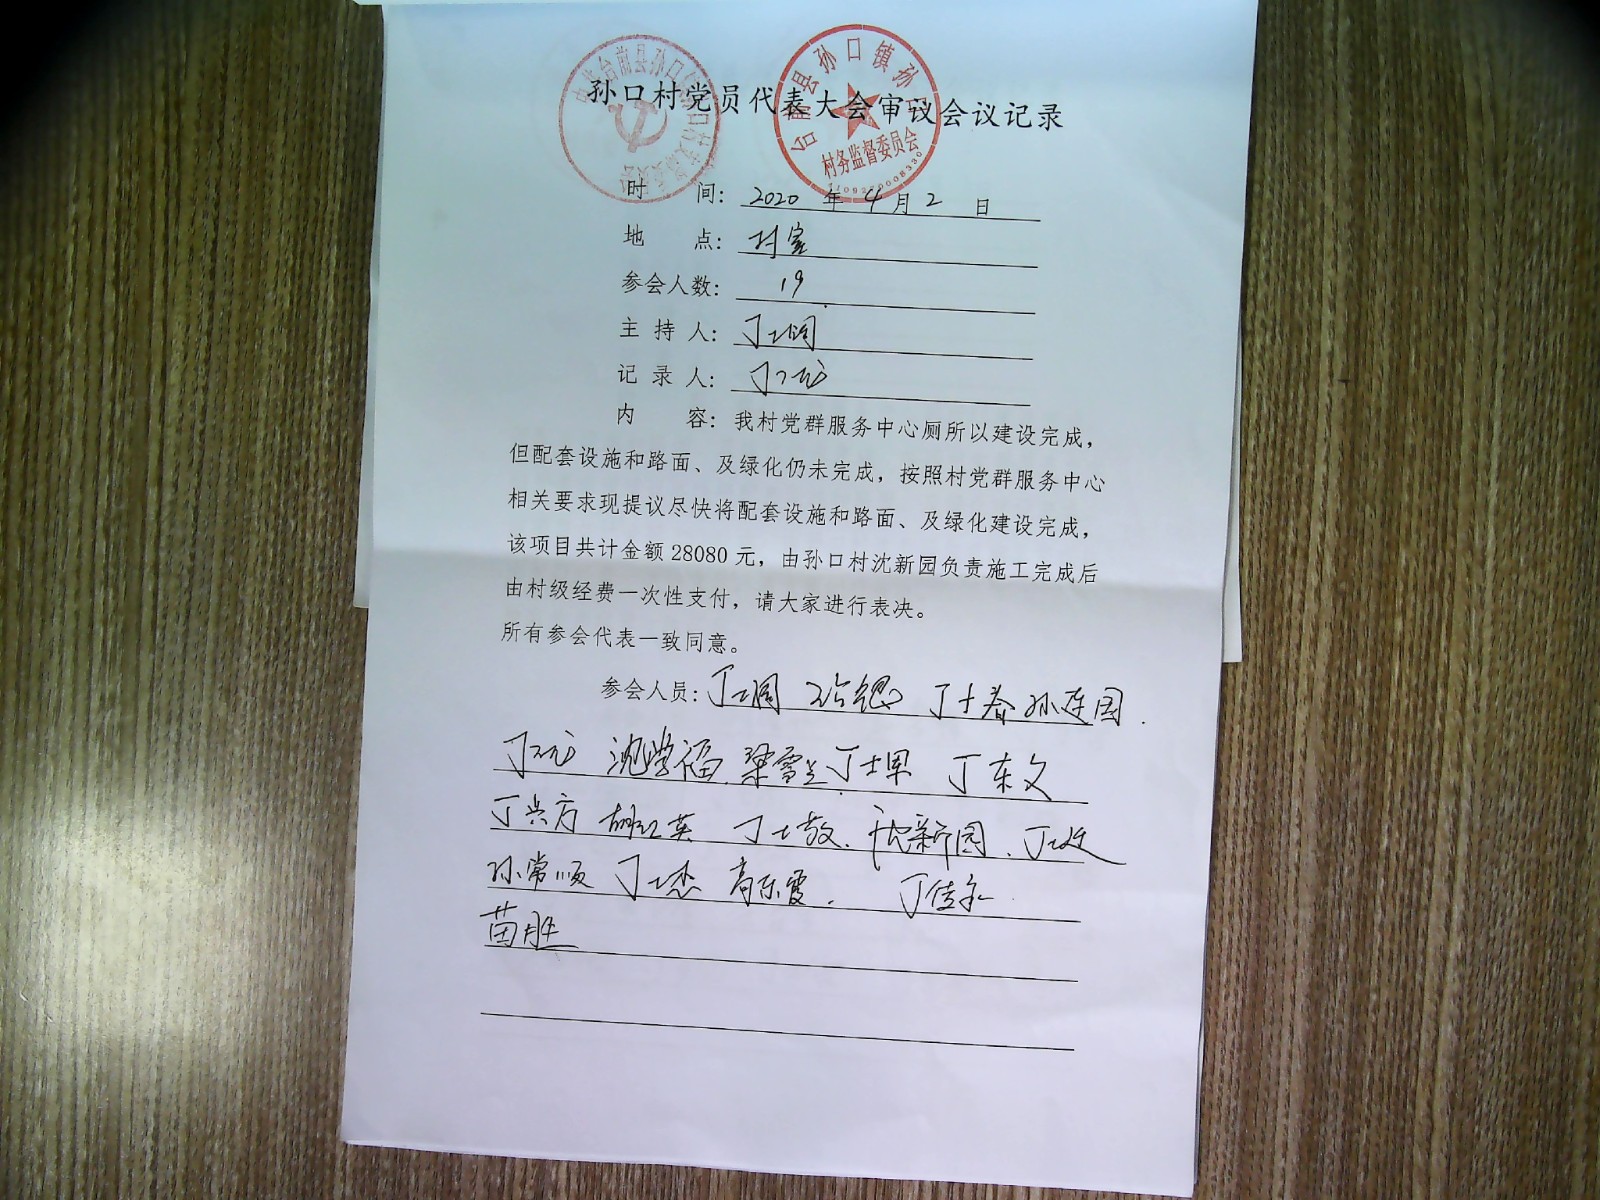 孙口村党员代表大会审议会议记录
台前县孙口镇孙口
村务监督委员会
时 间: 2020 年 4 月 2 日
地 点: 村室
参会人数: 19
主 持 人: 丁士阁
记 录 人:
内 容: 我村党群服务中心厕所以建设完成，
但配套设施和路面、及绿化仍未完成，按照村党群服务中心
相关要求现提议尽快将配套设施和路面、及绿化建设完成，
该项目共计金额 28080 元，由孙口村沈新园负责施工完成后
由村级经费一次性支付，请大家进行表决。
所有参会代表一致同意。
参会人员: 丁士阁 丁士春 孙连园.
沈学福 梁雪兰 丁士军 丁东文
丁兴方 胡红英 丁士敬. 沈新园.
孙常顺 丁士杰 高东霞. 丁佳永
苗胜